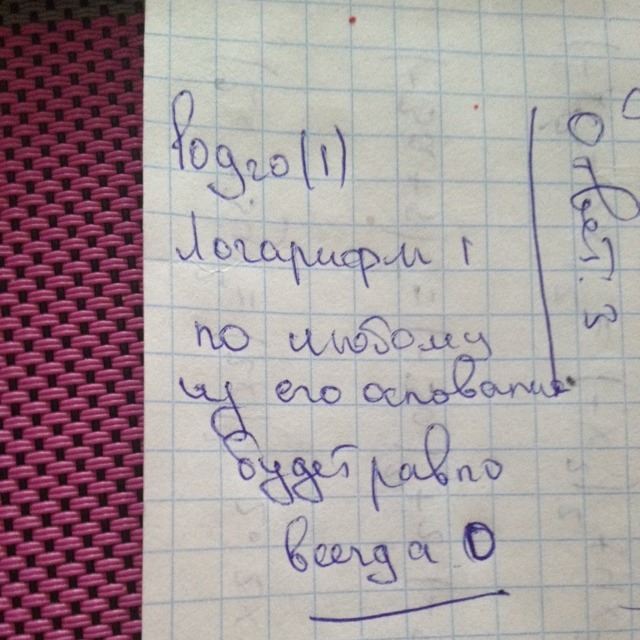 log20(1)
Логарифм 1
по любому
из его основань
будет равно
всегда 0